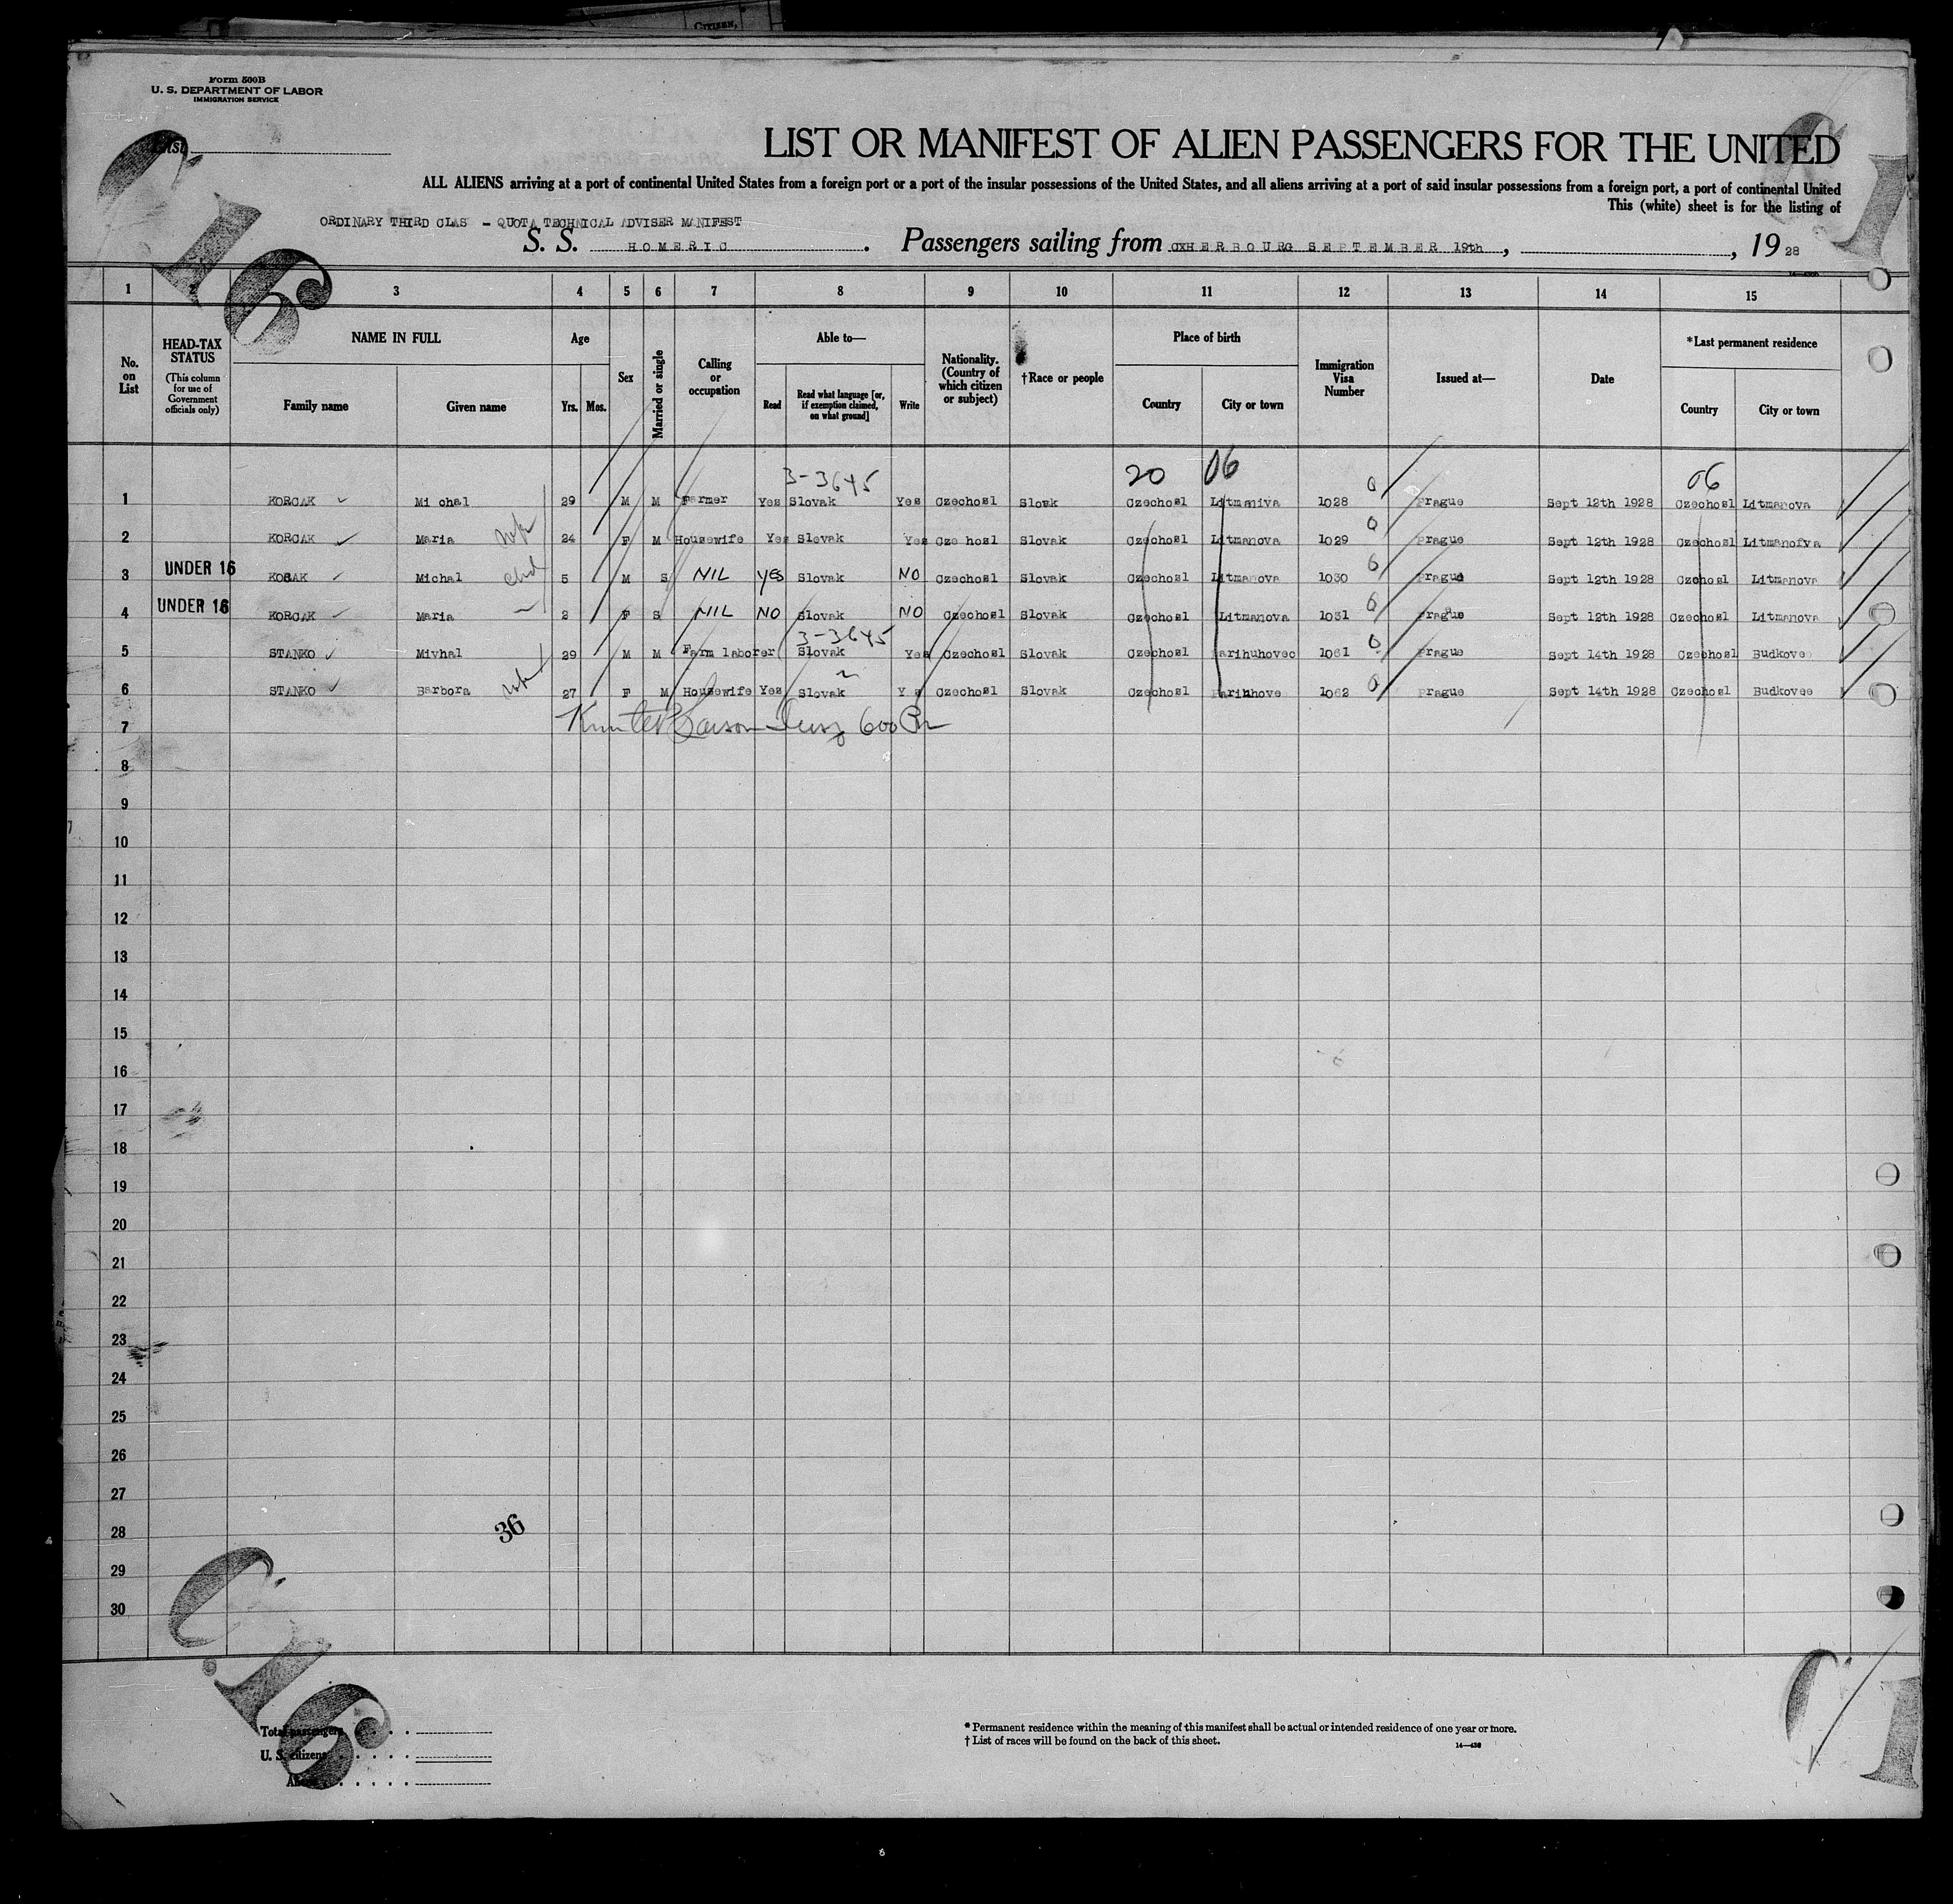 CITIZEN,
Form 500B
U. S. DEPARTMENT OF LABOR
IMMIGRATION SERVICE
List
LIST OR MANIFEST OF ALIEN PASSENGERS FOR THE UNITED
ALL ALIENS arriving at a port of continental United States from a foreign port or a port of the insular possessions of the United States, and all aliens arriving at a port of said insular possessions from a foreign port, a port of continental United
This (white) sheet is for the listing of
ORDINARY THIRD CLAS - QUOTA TECHNICAL ADVISER MANIFEST
S. S. HOMERIC . Passengers sailing from CXHERBOURG SEPTEMBER 19th, , 19 28
C 16
C 1
1 2 3 4 5 6 7 8 9 10 11 12 13 14 15
No. on List
HEAD-TAX STATUS (This column for use of Government officials only)
NAME IN FULL
Family name Given name
Age
Yrs. Mos.
Sex
Married or single
Calling or occupation
Able to—
Read Read what language [or, if exemption claimed, on what ground] Write
Nationality. (Country of which citizen or subject)
†Race or people
Place of birth
Country City or town
Immigration Visa Number
Issued at—
Date
*Last permanent residence
Country City or town
3-3645 20 06 06
1 KORCAK Mi chal 29 M M Farmer Yes Slovak Yes Czechosl Slowk Czechosl Litmaniva 1028 Prague Sept 12th 1928 Czechosl Litmanova
2 KORCAK Maria 24 F M Housewife Yes Slovak Yes Cze hosl Slovak Czechosl Litmanova 1029 Prague Sept 12th 1928 Czechosl Litmanofva
3 UNDER 16 Michal 5 M S NIL YES Slovak NO Czechosl Slovak Czechosl Litmanova 1030 Prague Sept 12th 1928 Czchosl Litmanova
4 UNDER 16 KORCAK Maria 2 F S NIL NO Slovak NO Czechosl Slovak Czechosl Litmanova 1031 Prague Sept 12th 1928 Czechosl Litmanova
3-3645
5 STANKO Mivhal 29 M M Farm laborer Slovak Yes Czechosl Slovak Czechosl Parihuhovec 1061 Prague Sept 14th 1928 Czechosl Budkove
6 STANKO Barbora 27 F M Housewife Yes Slovak Y s Czechosl Slovak Czechosl Parihhove 1062 Prague Sept 14th 1928 Czechosl Budkovee
7 600
8
9
10
11
12
13
14
15
16
17
18
19
20
21
22
23
24
25
26
27
28 36
29
30
C 16
C 1
Total passengers
U. S. citizens
Aliens
* Permanent residence within the meaning of this manifest shall be actual or intended residence of one year or more.
† List of races will be found on the back of this sheet.
14—430